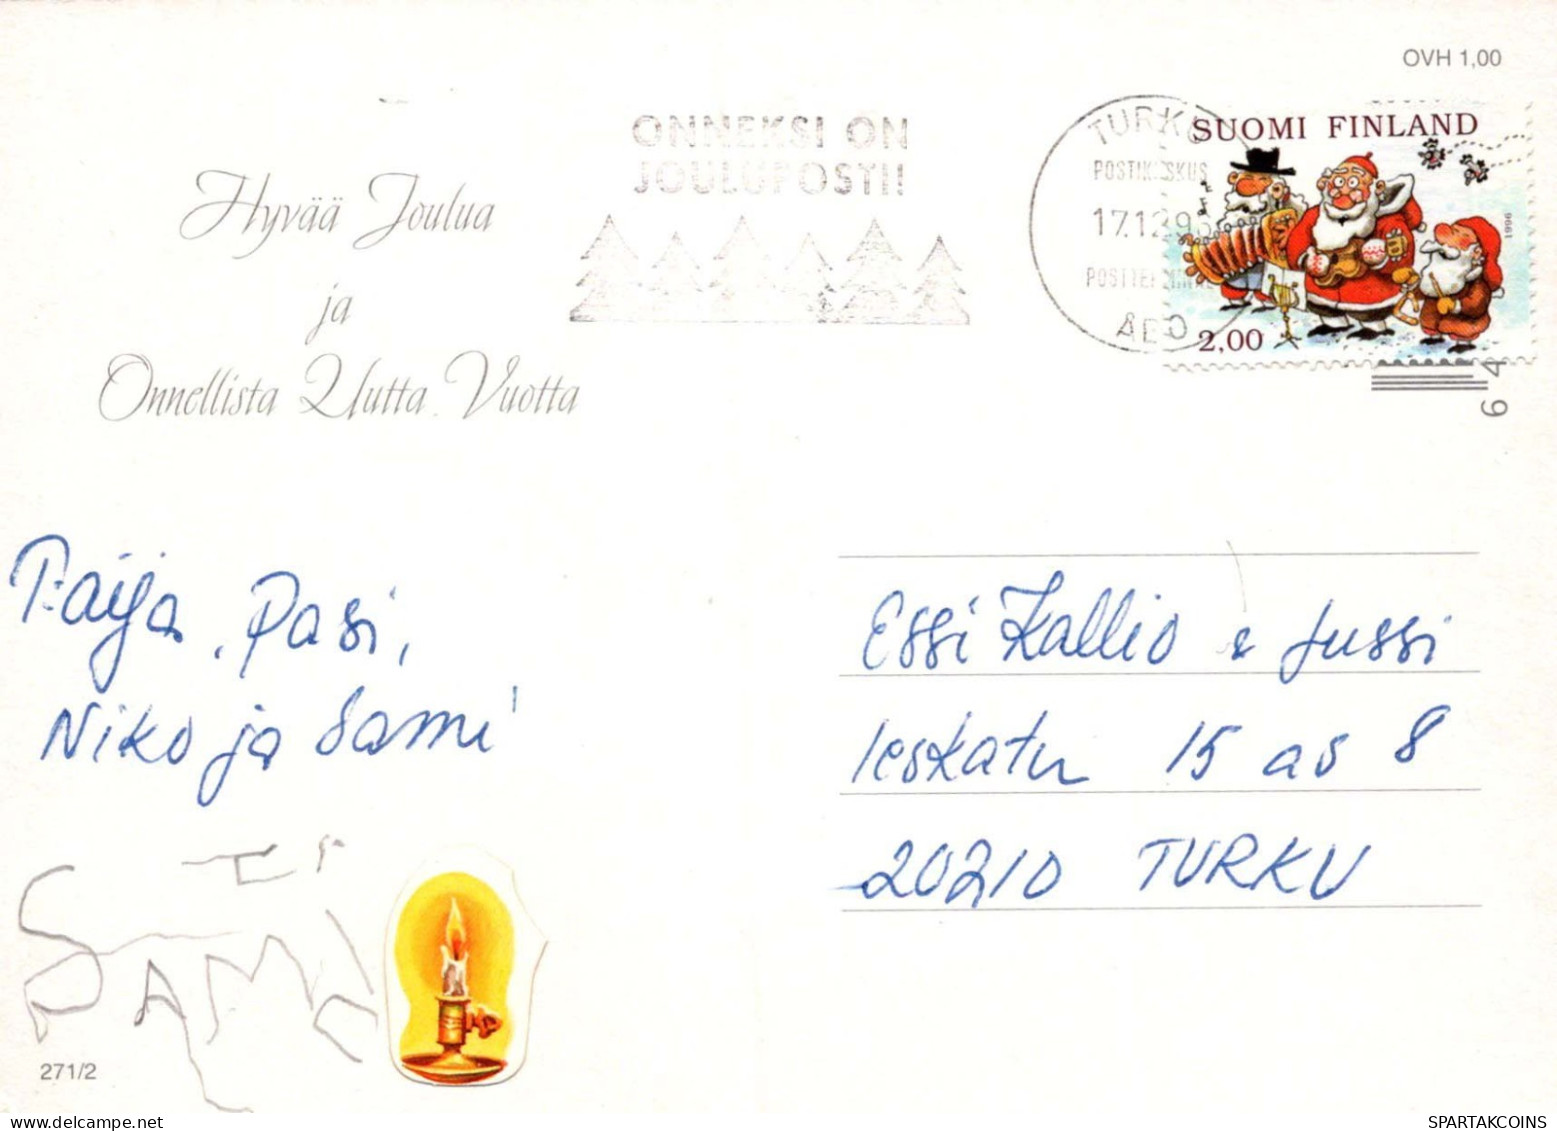 OVH 1,00
ONNEKSI ON
JOULUPOSTI!
TURKU
POSTIKESKUS
17.12.96
ÅBO
SUOMI FINLAND
1996
2,00
64
Hyvää Joulua
ja
Onnellista Uutta Vuotta
Raija, Pasi,
Niko ja Sami
SAMI
271/2
Essi Kallio & Jussi
15 as 8
20210 TURKU
SPARTAKCOINS